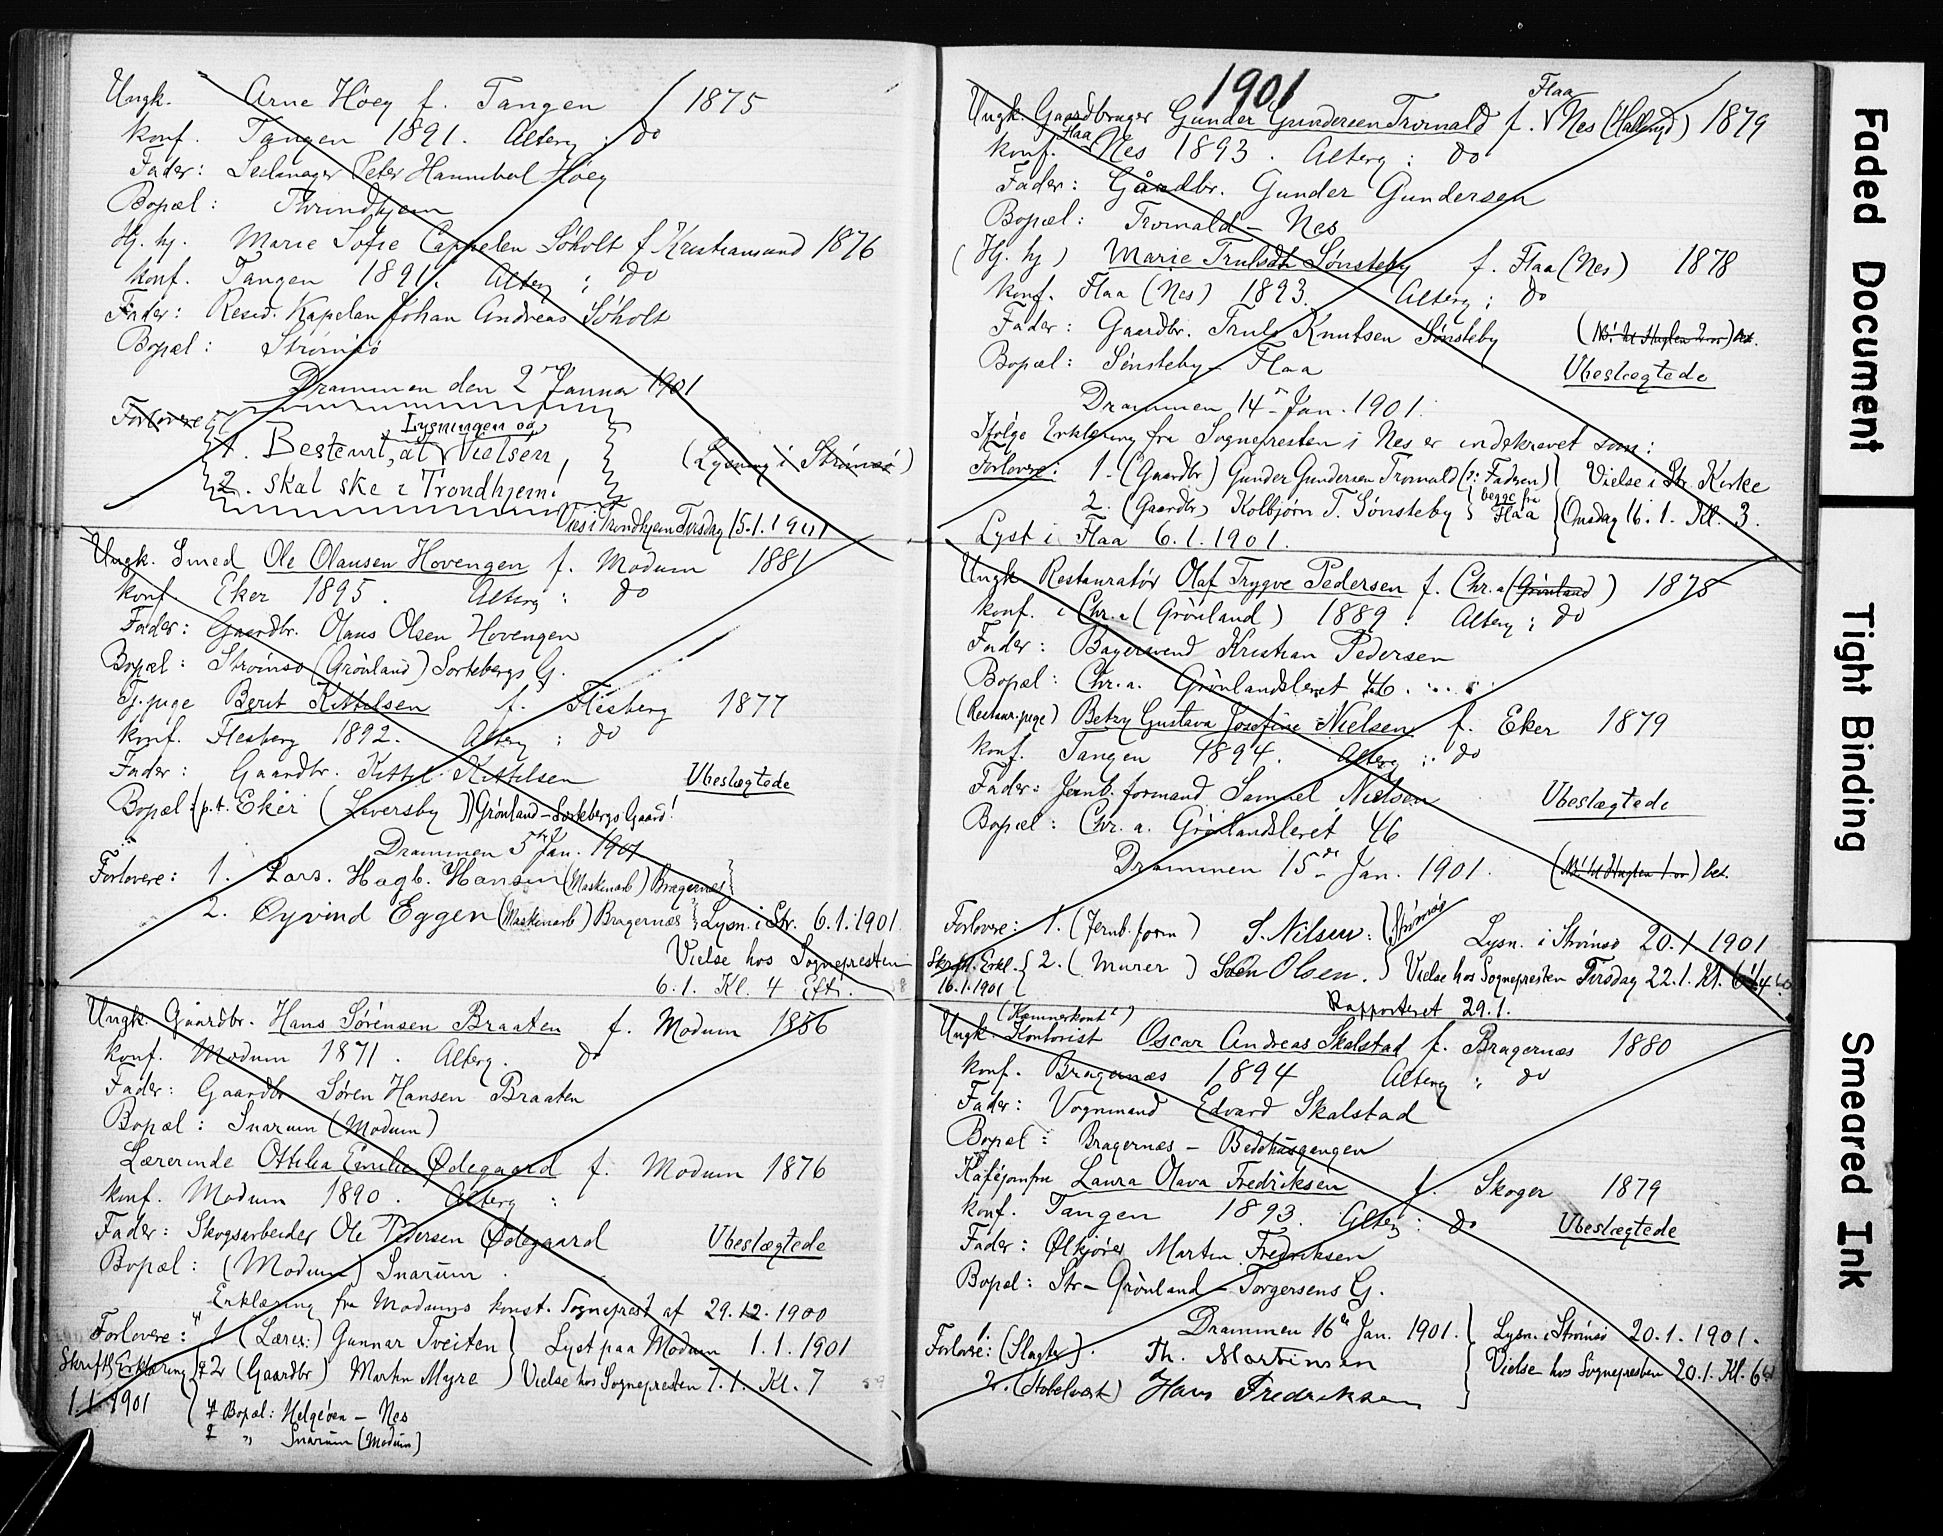 Ungk. Arne Höeg f. Tangen 1875
konf. Tangen 1891. Alterg: do
Fader: Peter Hannibal Höeg
Bopæl: Throndhjem
Hj. hj. Marie Sofie Cappelen Söholt f. Kristiansund 1876
konf. Tangen 1891. Alterg: do
Fader: Resid. Kapelan Johan Andreas Söholt
Bopæl: Strömsö
Drammen den 2 Janua 1901
Forlovere
Lysningen og
1. Bestemt, at Vielsen,
(Lysning i Strömsö)
2. skal ske i Trondhjem!
Vies i Trondhjem Tirsdag 15.1.1901
Ungk. Smed Ole Olausen Hovengen f. Modum 1881
konf. Eker 1895. Alterg: do
Fader: Gaardbr. Olaus Olsen Hovengen
Bopæl: Strömsö (Grönland) Sortebergs G.
Tj.pige Berit Kittilsen f. Flesberg 1877
konf. Flesberg 1892. Alterg: do
Fader: Gaardbr. Kittil Kittilsen
Ubeslægtede
Bopæl: (p.t. Eker (Leversby)) Grönland - Sortebergs Gaard!
Drammen 5 Jan. 1901
Forlovere: 1. Lars. Hagb. Hansen (Maskinarb) Bragernes
2. Øyvind Eggen (Maskinarb) Bragernæs Lysn. i Str. 6.1.1901
Vielse hos Sognepresten
6.1. Kl. 4 Eft.
Ungk. Gaardbr. Hans Sörensen Braaten f. Modum 1856
konf. Modum 1871. Alterg. do
Fader: Gaardbr Sören Hansen Braaten
Bopæl: Snarum (Modum)
Lærerinde Ottilia Emilie Ødegaard f. Modum 1876
konf. Modum 1890. Alterg:
Fader: Skogsarbeider Ole Pedersen Ødegaard
Ubeslægtede
Bopæl: (Modum) Snarum.
Erklæring fra Modums konst. Sogneprest af 29.12.1900
Forlovere: 1 (Lærer) Gunnar Tveiten Lyst paa Modum 1.1.1901
Skriftl. Erklæring 2 (Gaardbr) Martin Myre Vielse hos Sognepresten 7.1. Kl. 7
1.1.1901
1 Bopæl: Helgøen - Nes
2 " Snarum (Modum)
1901
Flaa
Ungk. Gaardbruger Gunder Gundersen Tromald f. Nes (Hallingd) 1879
Flaa
konf. Nes 1893. Alterg: do
Fader: Gårdbr. Gunder Gundersen
Bopæl: Tromald - Nes
(Hj. hj) Marie Trulsdt Sønsteby f. Flaa (Nes) 1878
konf. Flaa (Nes) 1893. Alterg: do
Fader: Gaardbr. Truls Knutsen Sønsteby
Bopæl: Sønsteby - Flaa
Ubeslægtede
Drammen 14 Jan. 1901.
Ifølge Erklæring fra Sognepresten i Nes er indskrevet som:
Forlovere: 1. (Gaardbr) Gunder Gundersen Tromald (ɔ: Faderen) Vielse i Str. Kirke
2. (Gaardbr) Kolbjørn T. Sønsteby begge fra Flaa Onsdag 16.1. Kl. 3.
Lyst i Flaa 6.1.1901.
Ungk. Restauratör Olaf Trygve Pedersen f. Chr.a (Grönland) 1875
konf. i Chr.a (Grönland) 1889. Alterg: do
Fader: Bagersvend Kristian Pedersen
Bopæl: Chr.a. Grönlandsleret 46.
(Restaur.pige) Betzy Gustava Josefine Nielsen f. Eker 1879
konf. Tangen 1894. Alterg: do
Fader: Jernb. formand Samuel Nielsen
Ubeslægtede
Bopæl: Chr.a. Grönlandsleret 46
Drammen 15de Jan. 1901.
Forlovere: 1. (Jernb. form) S. Nilsen. Strömsö Lysn. i Strömsö 20.1.1901
Skriftl. Erkl. 2. (Murer) Sven Olsen. Vielse hos Sognepresten Tirsdag 22.1. Kl.
16.1.1901
Rapporteret 29.1.
(Kæmnerkont)
Ungk. Kontorist Oscar Andreas Skalstad f. Bragernæs 1880
konf. Bragernæs 1894 Alterg: do
Fader: Vognmand Edvard Skalstad
Bopæl: Bragernæs - Bedehusgangen
Kaféjomfru Laura Olava Fredriksen f. Skoger 1879
konf. Tangen 1893. Alterg: do
Ubeslægtede
Fader: Ølkjører Martin Fredriksen
Bopæl: Str - Grönland - Torgersens G.
Drammen 16de Jan. 1901. Lysn. i Strömsö 20.1.1901.
Forlovere: 1. (Slagter). Th. Martinsen Vielse hos Sognepresten 20.1. Kl. 6
2. Hans Fredriksen
Faded Document
Tight Binding
Smeared Ink